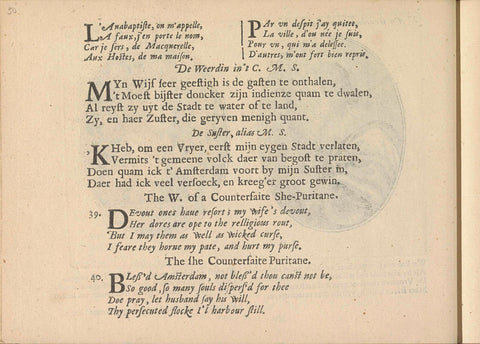 50.
L'Anabaptiste, on m'appelle,
A faux, j'en porte le nom,
Car je sers, de Macquerelle,
Aux Hostes, de ma maison.
PAr un despit j'ay quitée,
La ville, d'ou née je suis,
Pour un, qui m'a delessée.
D'autres, m'ont fort bien reprise.
De Weerdin in't C. M. S.
MYn Wijf seer geestigh is de gasten te onthalen,
't Moest bijster doncker zijn indienze quam te dwalen,
Al reyst zy uyt de Stadt te water of te land,
Zy, en haer Zuster, die geryven menigh quant.
De Suster, alias M. S.
'K Heb, om een Vryer, eerst mijn eygen Stadt verlaten,
Vermits 't gemeene volck daer van begost te praten,
Doen quam ick t' Amsterdam voort by mijn Suster in,
Daer had ick veel versoeck, en kreeg'er groot gewin.
The W. of a Counterfaite She-Puritane.
39. DEvout ones haue resort; my wife's devout,
Her dores are ope to the relligious rout,
But I may them as well as wicked curse,
I feare they horne my pate, and hurt my purse.
The she Counterfaite Puritane.
40. BLess'd Amsterdam, not bless'd thou canst not be,
So good, so many souls dispers'd for thee
Doe pray, let husband say his will,
Thy persecuted flocke I'l harbour still.